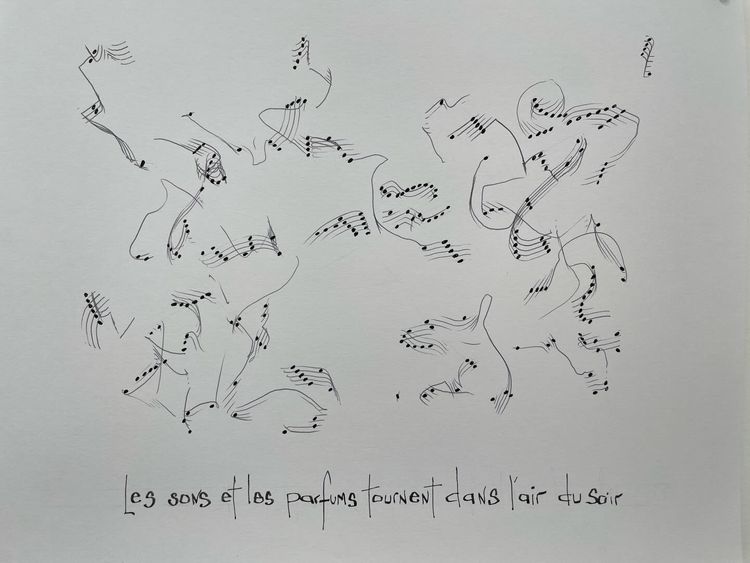 Les sons et les parfums tournent dans l'air du soir